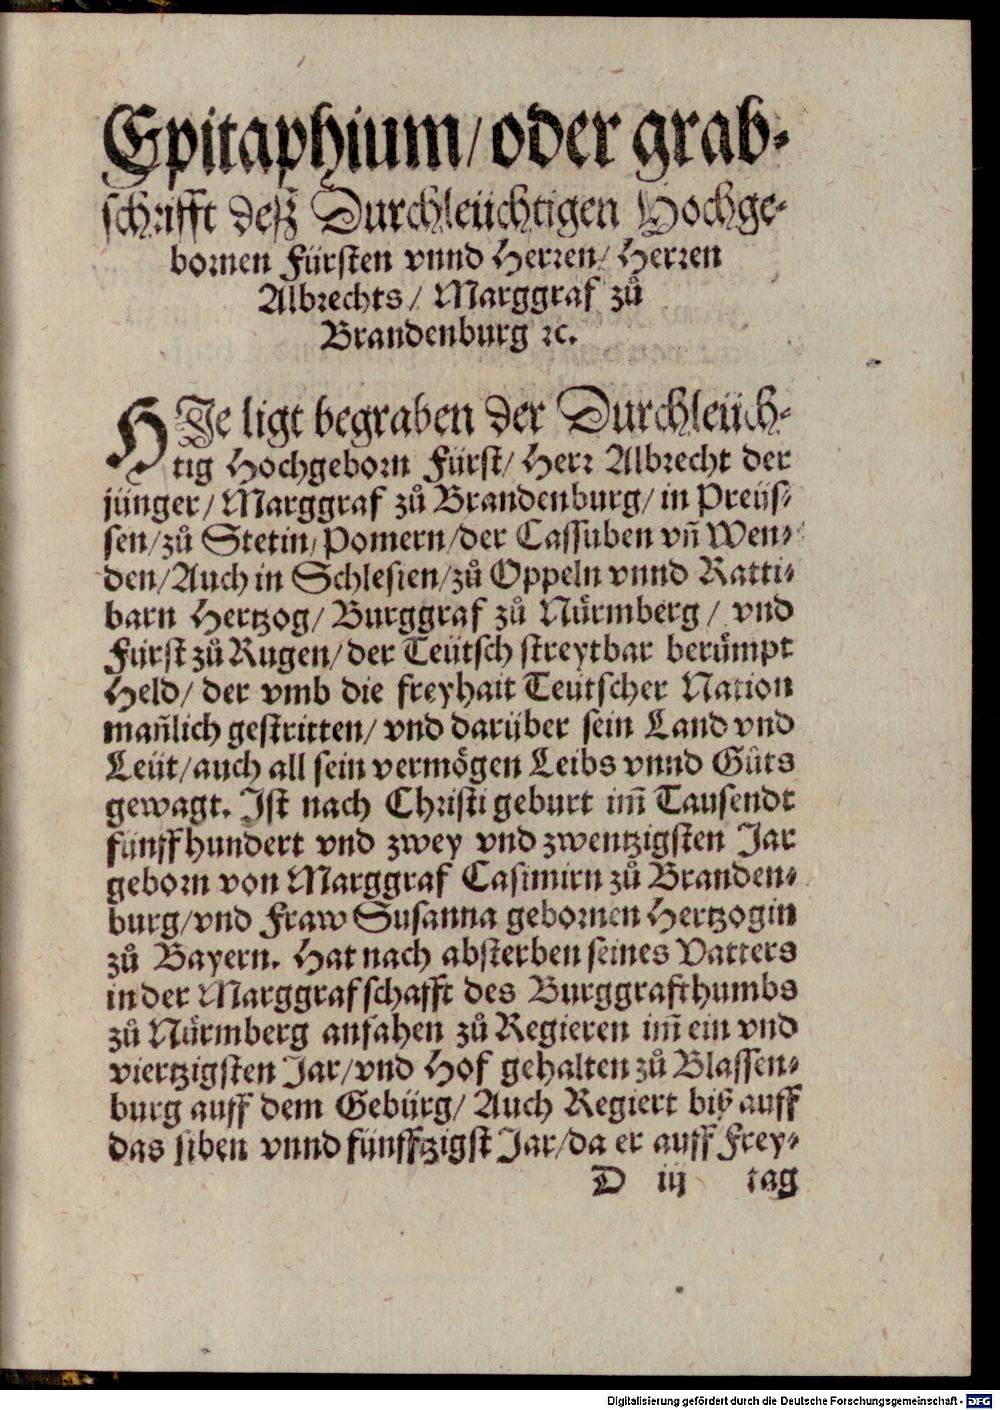 Epitaphium/ oder grab-
schrifft deß Durchleüchtigen Hochge-
bornen Fürsten vnnd Herren/ Herren
Albrechts/ Marggraf zů
Brandenburg ꝛc.
HIe ligt begraben der Durchleüch-
tig Hochgeborn Fürst/ Herr Albrecht der
jünger/ Marggraf zů Brandenburg/ in Preüs-
sen/ zů Stetin/ Pomern/ der Cassuben vñ Wen-
den/ Auch in Schlesien/ zů Oppeln vnnd Ratti-
barn Hertzog/ Burggraf zů Nürmberg/ vnd
Fürst zů Rugen/ der Teütsch streytbar berümpt
Held/ der vmb die freyhait Teütscher Nation
mañlich gestritten/ vnd darüber sein Land vnd
Leüt/ auch all sein vermögen Leibs vnnd Gůts
gewagt. Ist nach Christi geburt im̃ Tausendt
fünffhundert vnd zwey vnd zwentzigsten Jar
geborn von Marggraf Casimirn zů Branden-
burg/ vnd Fraw Susanna gebornen Hertzogin
zů Bayern. Hat nach absterben seines Vatters
in der Marggrafschafft des Burggrafthumbs
zů Nürmberg anfahen zů Regieren im̃ ein vnd
viertzigsten Jar/ vnd Hof gehalten zů Blassen-
burg auff dem Gebürg/ Auch Regiert biß auff
das siben vnnd fünfftzigst Jar/ da er auff Frey-
D iij tag
Digitalisierung gefördert durch die Deutsche Forschungsgemeinschaft - DFG